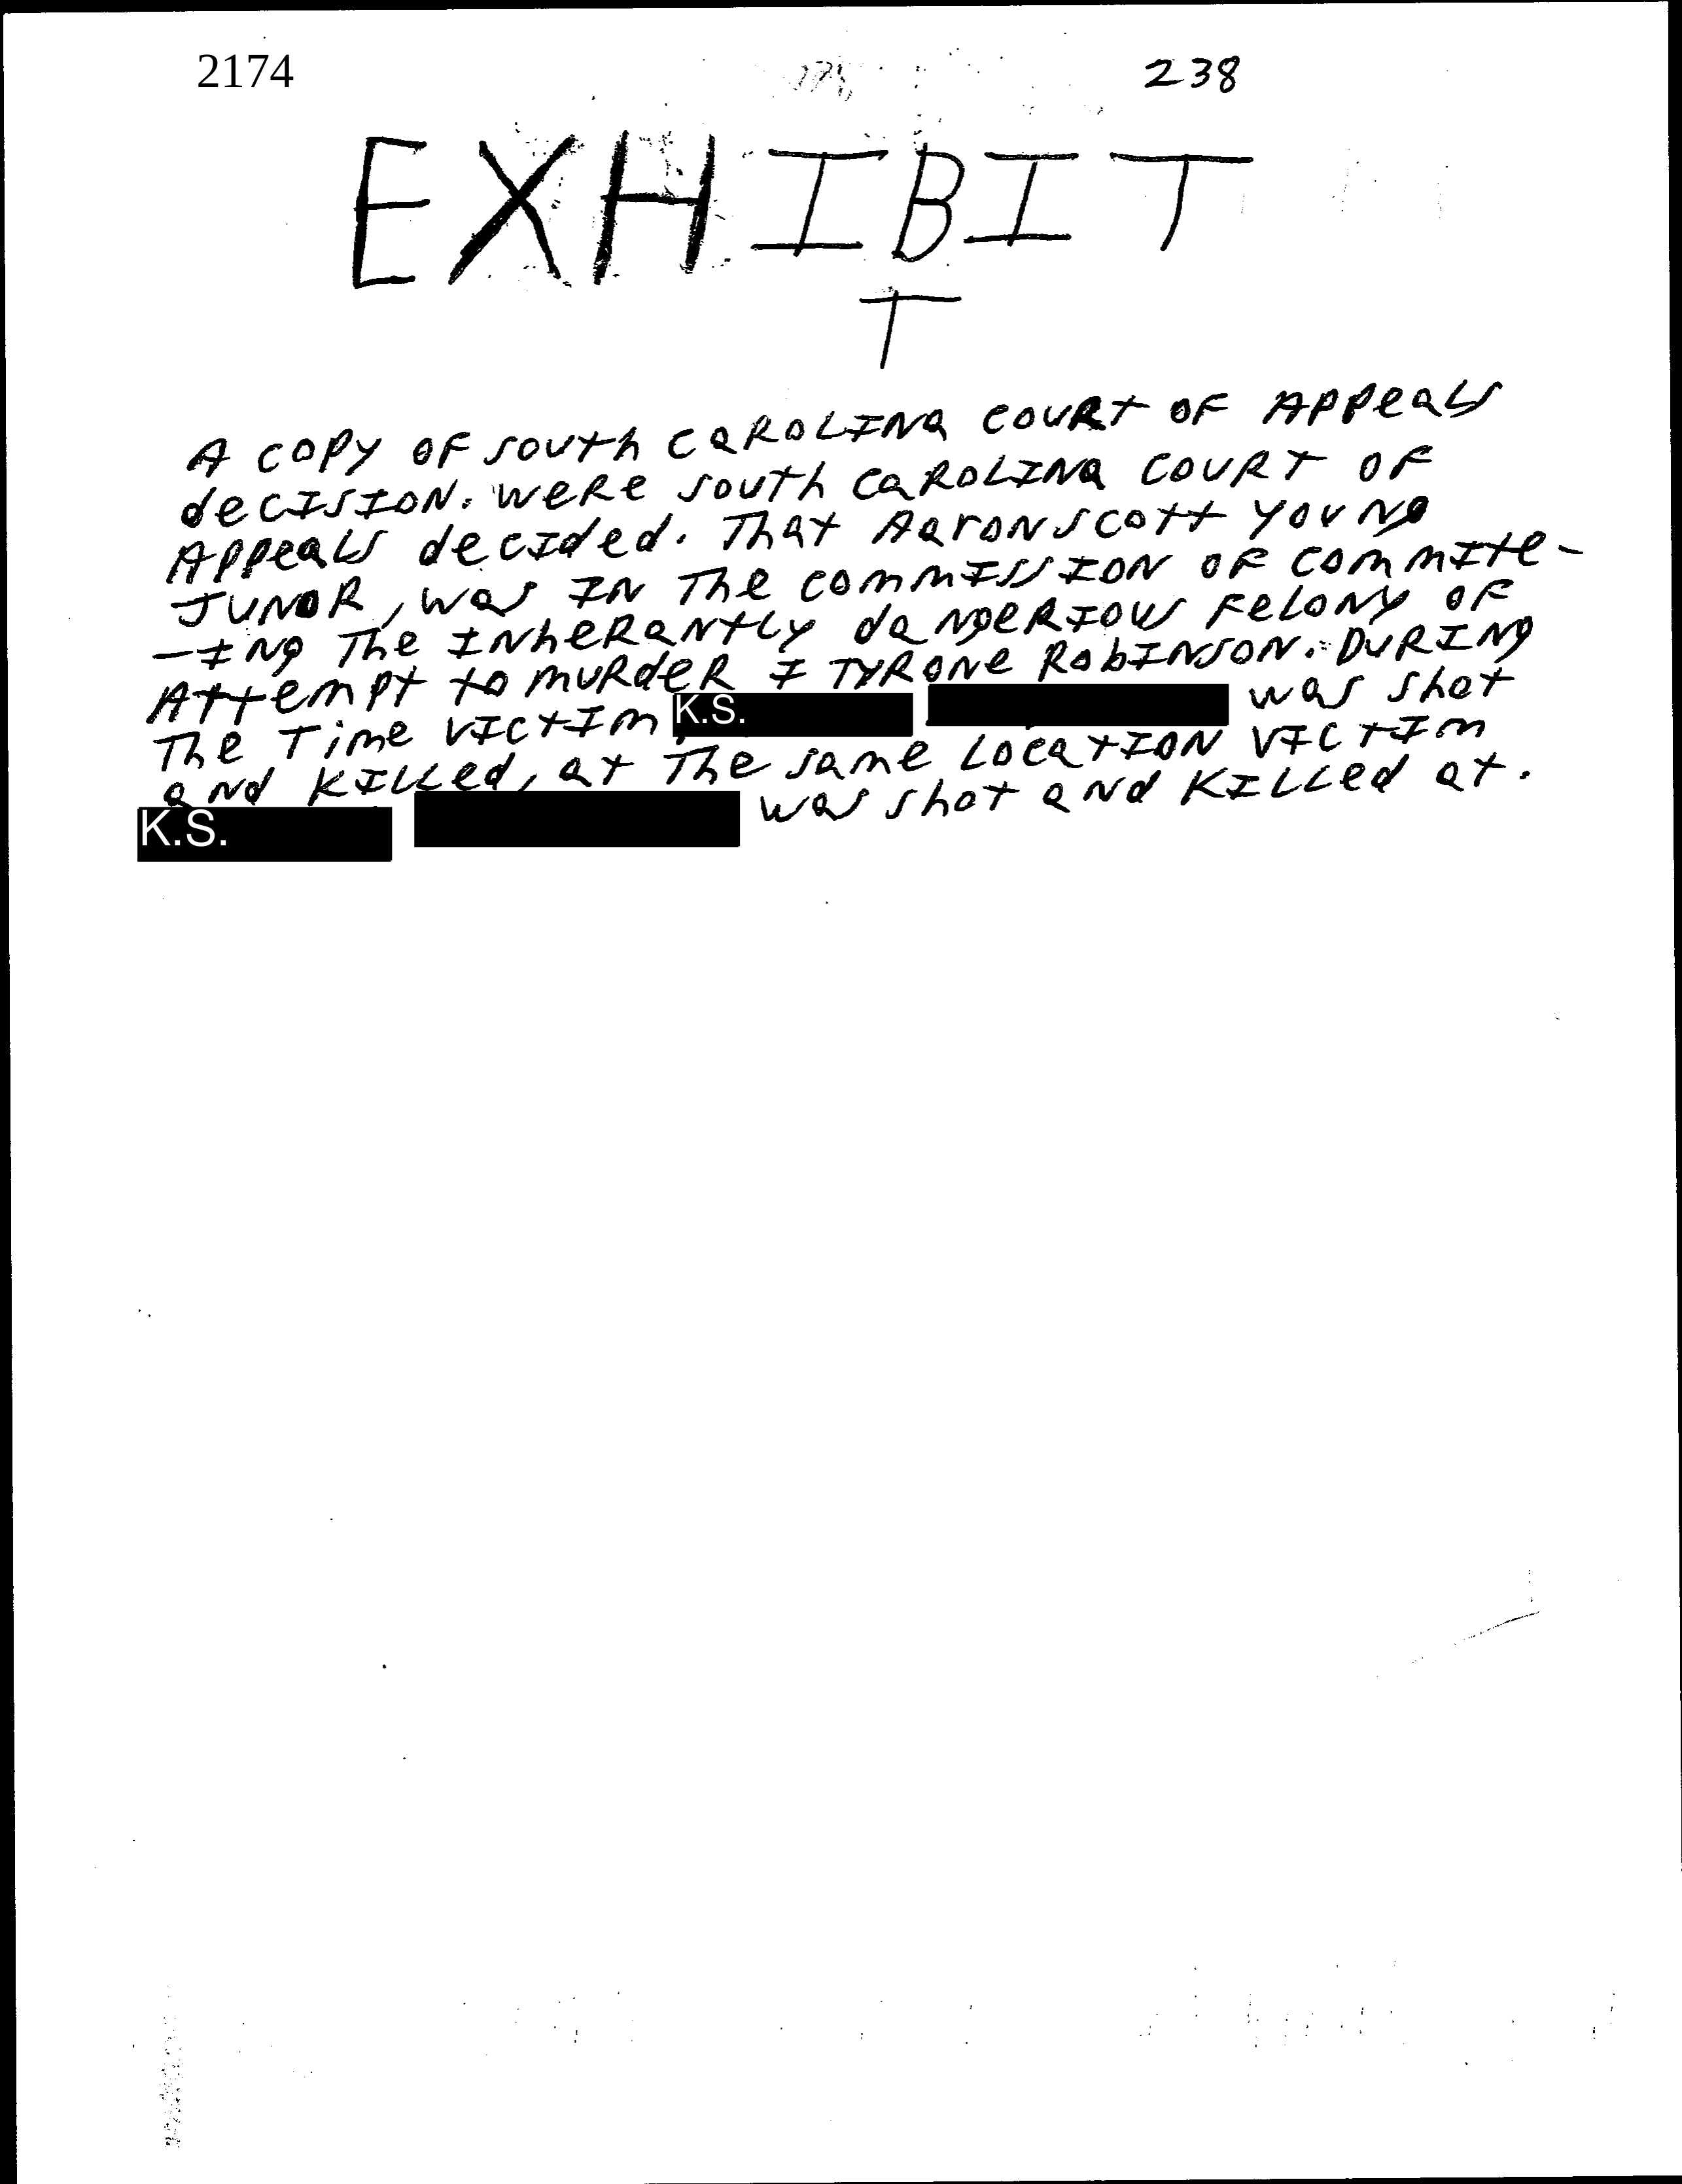 2174 238
EXHIBIT
T
A copy of South Carolina Court of Appeals
decision. Were South Carolina Court of
Appeals decided. That Aaron Scott Young
Junor, was in the commission of commite-
-ing the inherantly dangerious felony of
Attempt to murder I Tyrone Robinson. During
The Time victim K.S. was shot
and killed, at the same location victim
K.S. was shot and killed at.